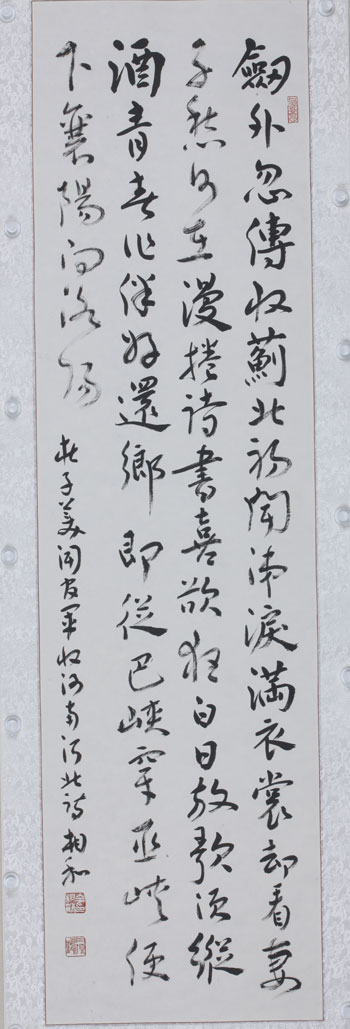 劒外忽傳收薊北初聞涕淚滿衣裳却看妻
子愁何在漫捲詩書喜欲狂白日放歌須縱
酒青春作伴好還鄉即從巴峽穿巫峽便
下襄陽向洛陽
杜子美聞官軍收河南河北詩 相和